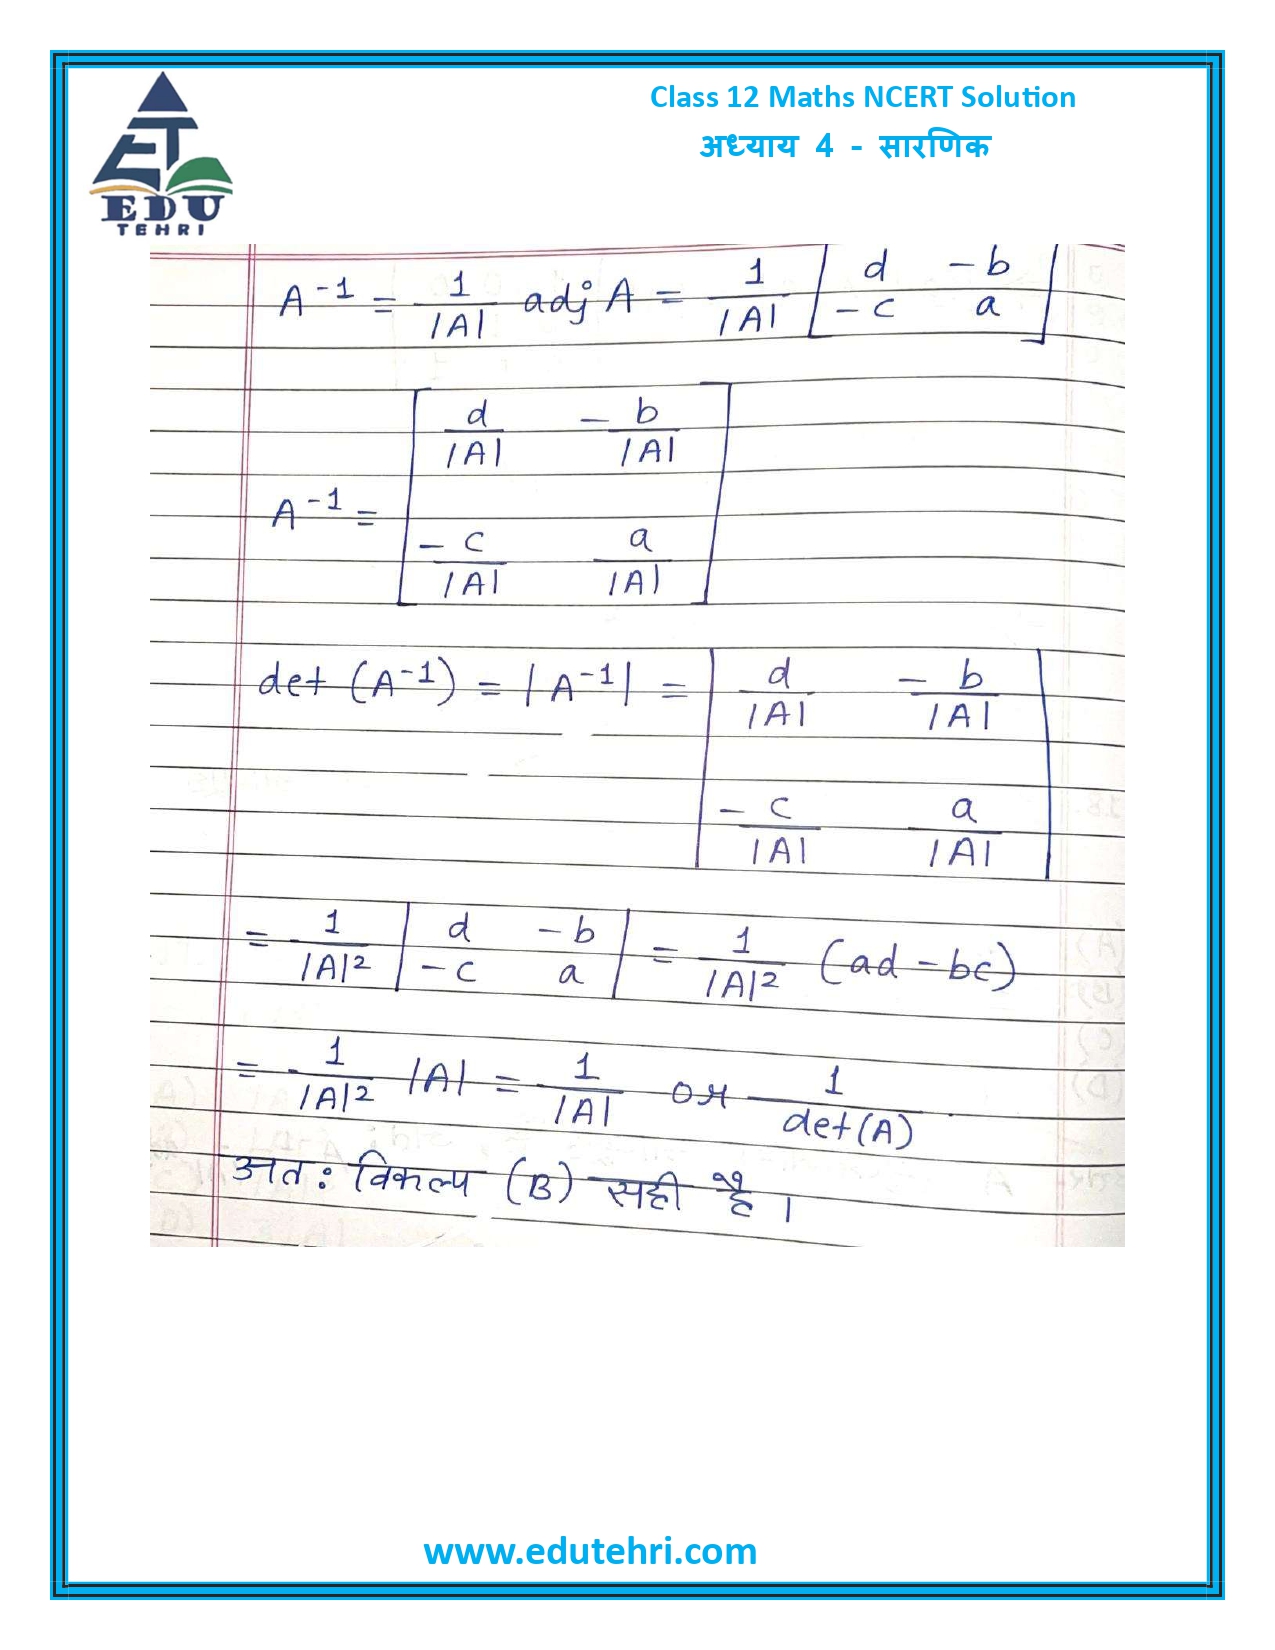 Class 12 Maths NCERT Solution
अध्याय 4 - सारणिक
EDU
TEHRI
A⁻¹ = 1/|A| adj A = 1/|A| [d -b
-c a]
A⁻¹ = [d/|A| -b/|A|
-c/|A| a/|A|]
det (A⁻¹) = |A⁻¹| = |d/|A| -b/|A|
-c/|A| a/|A||
= 1/|A|² |d -b
-c a| = 1/|A|² (ad - bc)
= 1/|A|² |A| = 1/|A| or 1/det(A)
अतः विकल्प (B) सही है।
www.edutehri.com